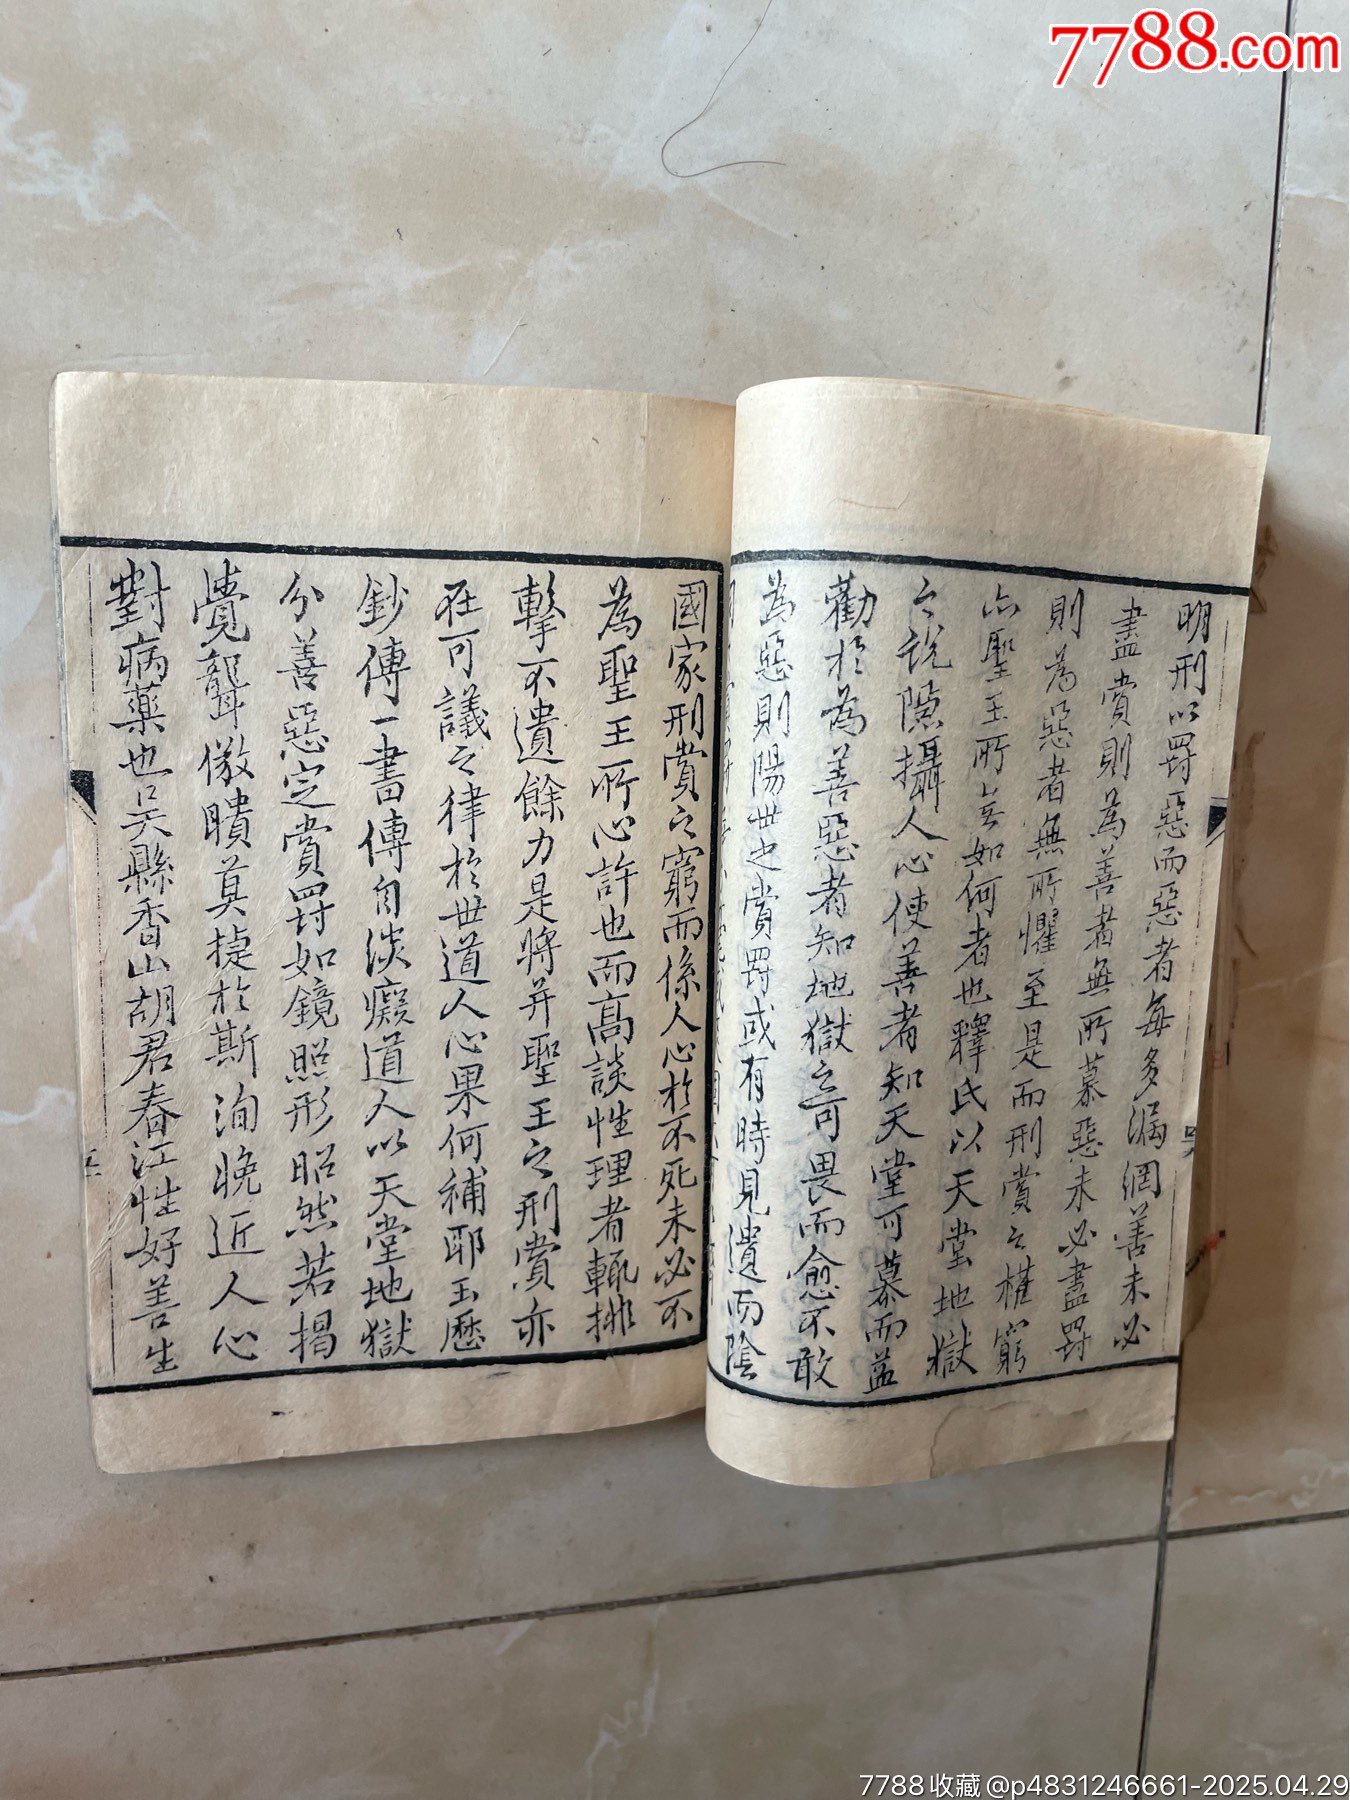 7788.com
明刑以罸惡而惡者每多漏網善未必
盡賞則為善者無所慕惡未必盡罸
則為惡者無所懼至是而刑賞之權窮
亦聖王所無如何者也釋氏以天堂地獄
之說隱攝人心使善者知天堂可慕而益
勸於為善惡者知地獄之可畏而愈不敢
為惡則陽世之賞罸或有時見遺而陰
國家刑賞之窮而係人心於不死未必不
為聖王所心許也而高談性理者輒排
擊不遺餘力是將并聖王之刑賞亦
在可議之律於世道人心果何補耶玉歷
鈔傳一書傳自淡癡道人以天堂地獄
分善惡定賞罸如鏡照形昭然若揭
覺聾儆瞶莫捷於斯洵晚近人心
對病藥也吳縣香山胡君春江性好善生
五
7788收藏@p4831246661-2025.04.29